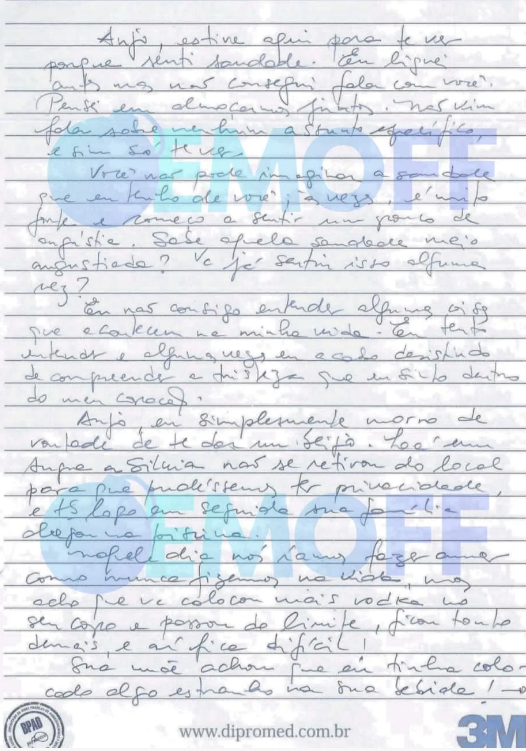 Anjo, estive aqui para te ver
porque senti saudade. Eu liguei
antes mas não consegui falar com você.
Pensei em almoçarmos juntos. Não vim
falar sobre nenhum assunto específico,
e sim só te ver.
Você não pode imaginar a saudade
que eu tenho de você; às vezes, é muito
forte e começo a sentir um pouco de
angústia. Sabe aquela saudade meio
angustiada? Vc já sentiu isso alguma
vez?
Eu não consigo entender algumas coisas
que acontecem na minha vida. Eu tento
entender e algumas vezes eu acabo desistindo
de compreender a tristeza que eu sinto dentro
do meu coração.
Anjo, eu simplesmente morro de
vontade de te dar um beijo. Lá em
Angra a Silvia não se retirou do local
para que pudéssemos ter privacidade,
e logo em seguida sua família
chegou na piscina.
Naquele dia nós íamos fazer amor
como nunca fizemos na vida, mas
acho que vc colocou mais vodka no
seu copo e passou do limite, ficou tonto
demais, e aí fica difícil!
Sua mãe achou que eu tinha colo-
cado algo estranho na sua bebida!
EMOFF
EMOFF
DPAD
www.dipromed.com.br
3M